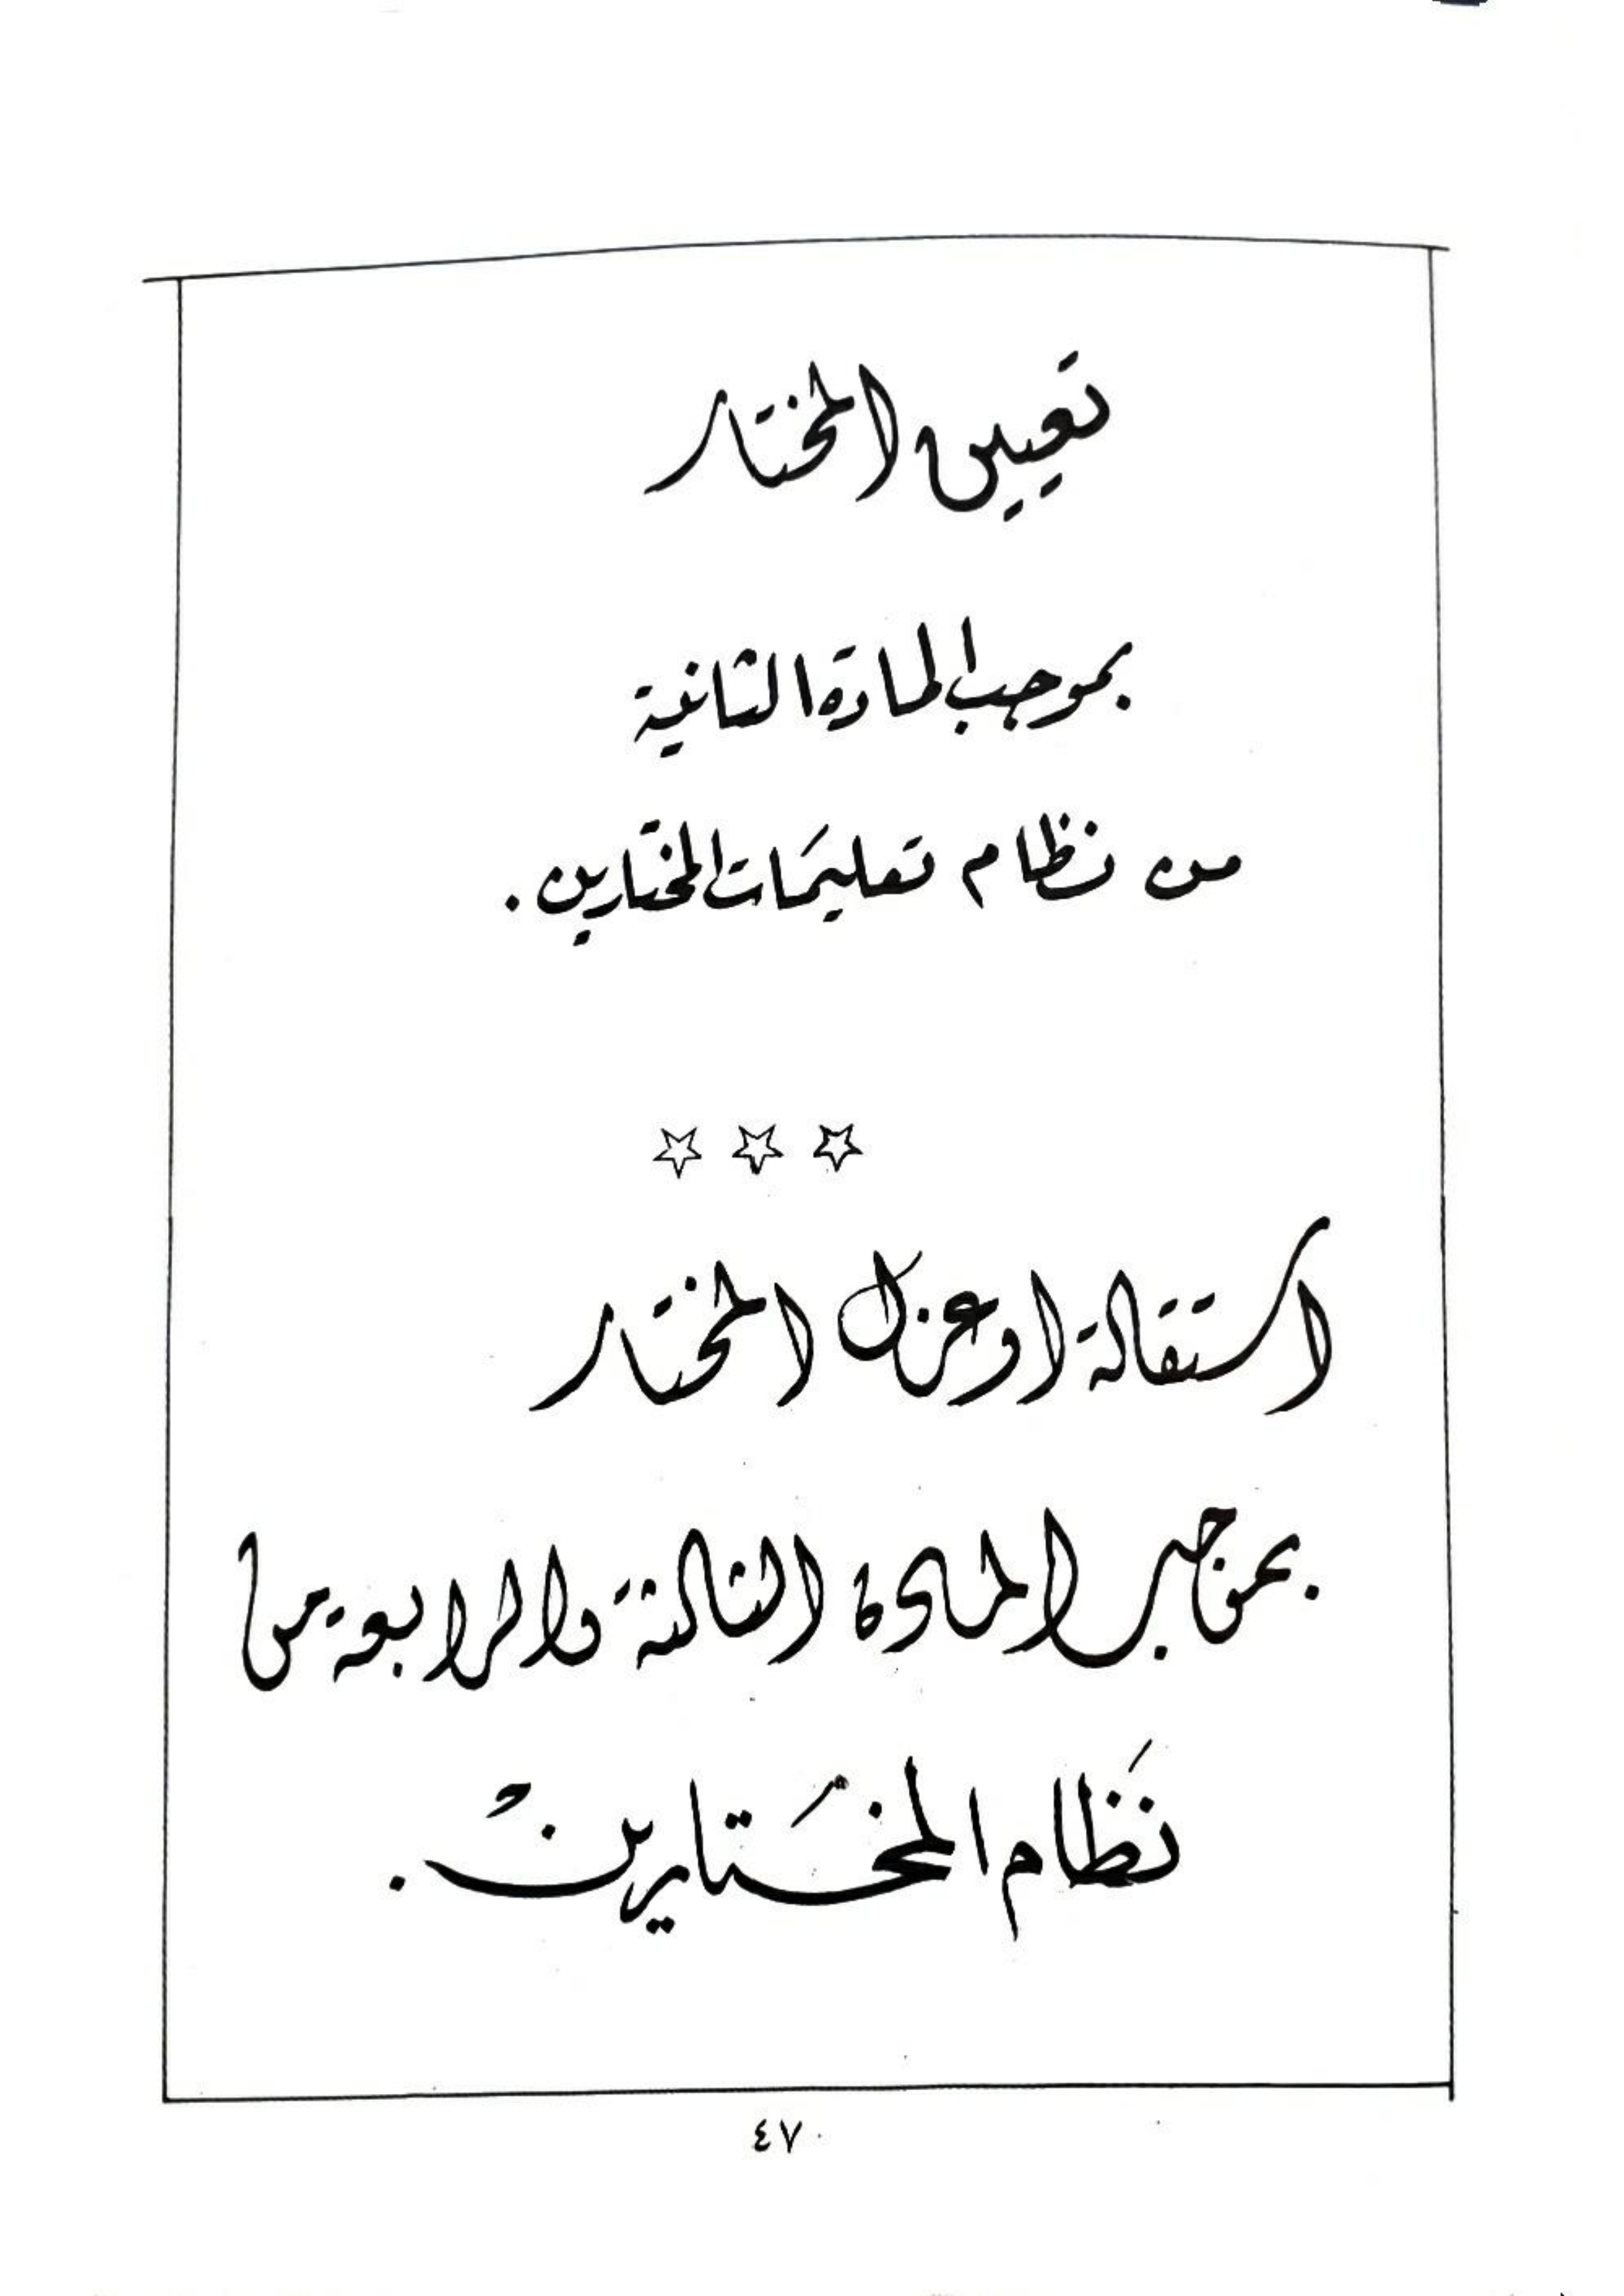 تعيين المختار
بموجب المادة الثانية
من نظام تعليمات المختارين .
☆ ☆ ☆
استقالة او عزل المختار
بموجب المادة الثالثة والرابعة من
نظام المختارين .
٤٧